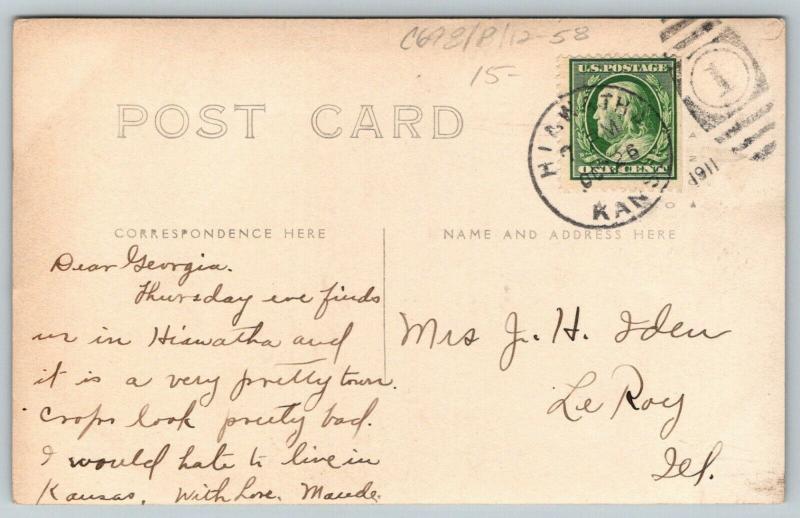 C698/P/12-58
15-
POST CARD
U.S. POSTAGE
ONE CENT
HIAWATHA
OCT 26
1911
KANS
1
CORRESPONDENCE HERE
NAME AND ADDRESS HERE
Dear Georgia.
Thursday eve finds
us in Hiawatha and
it is a very pretty town.
Crops look pretty bad.
I would hate to live in
Kansas. With Love. Maude.
Mrs J. H. Iden
Le Roy
Ill.